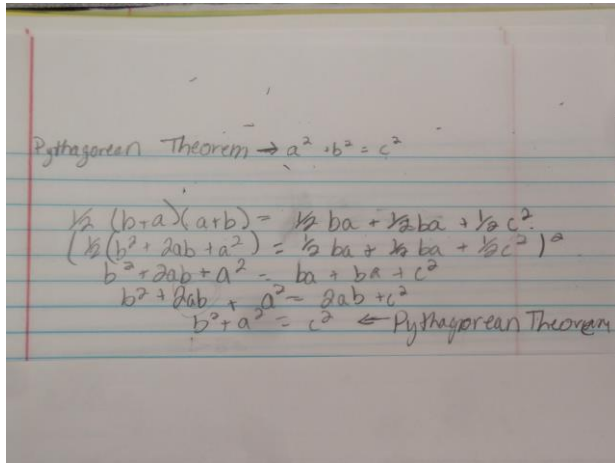 Pythagorean Theorem → a² + b² = c²
½ (b+a)(a+b) = ½ ba + ½ ba + ½ c²
(½(b² + 2ab + a²) = ½ ba + ½ ba + ½c²)²
b² + 2ab + a² = ba + ba + c²
b² + 2ab + a² = 2ab + c²
b² + a² = c² ← Pythagorean Theorem